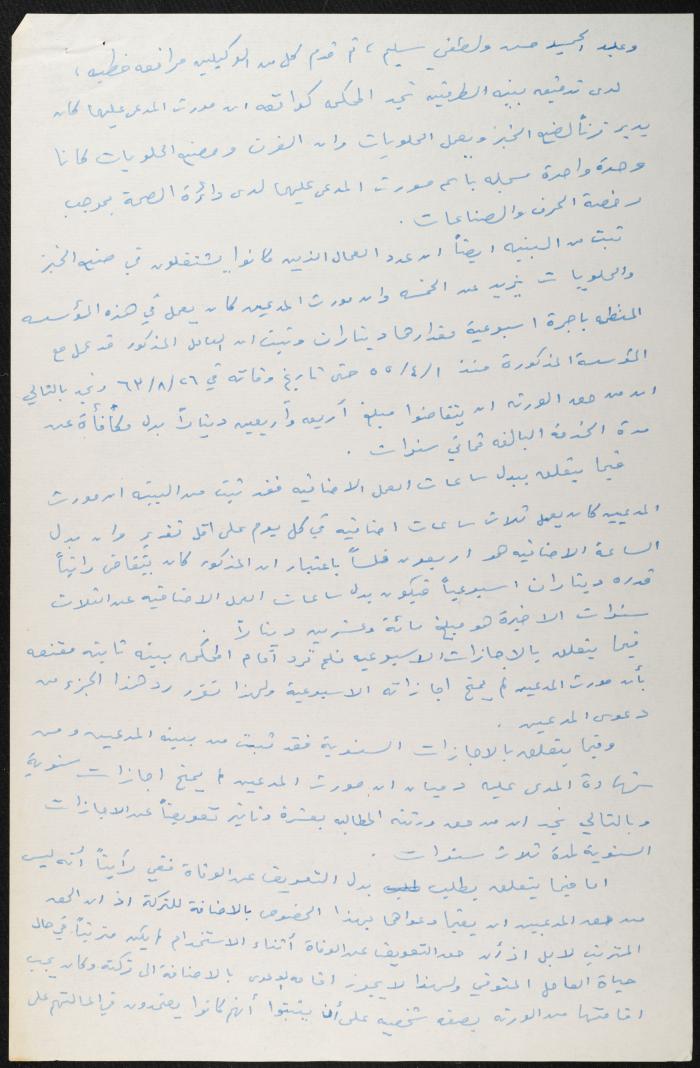 وعبد الحميد حسن ولطفي سليم ، ثم قدم كل من الوكيلين مرافعه خطيه ،
لدى تدقيق بينه الطرفين تجد المحكمه كواقعه ان مورث المدعى عليها كان
يدير فرناً لصنع الخبز وبعمل الحلويات وان الفرن ومصنع الحلويات كانا
وحدة واحدة مسجله باسم مورث المدعى عليها لدى دائرة الصحة بموجب
رخصة الحرف والصناعات .
ثبت من البينه ايضاً ان عدد العمال الذين كانوا يشتغلون في صنع الخبز
والحلويات يزيد عن الخمسه وان مورث المدعين كان يعمل في هذه المؤسسه
المنظمه باجرة اسبوعية مقدارها ديناران وثبت ان العامل المذكور قد عمل مع
المؤسسة المذكورة منذ ٥٥/٤/١ حتى تاريخ وفاته في ٦٣/٨/٢٦ ونجد بالتالي
ان من حق الورثه ان يتقاضوا مبلغ اربعه وأربعين ديناراً بدل مكافأة عن
مدة الخدمة البالغه ثماني سنوات .
فيما يتعلق ببدل ساعات العمل الاضافيه فقد ثبت من البينه ان مورث
المدعيين كان يعمل ثلاث ساعات اضافيه في كل يوم على اقل تقدير وان بدل
الساعة الاضافيه هو اربعون فلساً باعتبار ان المذكور كان يتقاضى راتباً
قدره ديناران اسبوعياً فيكون بدل ساعات العمل الاضافيه عن الثلاث
سنوات الاخيرة هو مبلغ مائة وعشرين ديناراً .
فيما يتعلق بالاجازات الاسبوعيه فلم ترد أمام المحكمه بينه ثابته مقنعه
بأن مورث المدعين لم يمنح اجازاته الاسبوعية ولهذا تقرر رد هذا الجزء من
دعوى المدعين .
وفيما يتعلق بالاجازات السنوية فقد ثبت من بينه المدعيين ومن
شهادة المدعى عليه دميان ان مورث المدعيين لم يمنح اجازات سنوية
وبالتالي نجد ان من حق ورثته المطالبه بعشرة دنانير تعويضاً عن الاجازات
السنوية لمدة ثلاث سنوات .
اما فيما يتعلق بطلب بدل التعويض عن الوفاة ففي رأينا أنه ليس
من حق المدعيين ان يقيما دعواهما بهذا الخصوص بالاضافة للتركة اذ ان الحق
المترتب لا بل اذ أن حق التعويض عن الوفاة أثناء الاستخدام لم يكن مترتباً في حال
حياة العامل المتوفي ولهذا لا يجوز اقامه الدعوى بالاضافة الى تركته وكان يجب
اقامتها من الورثه بصفه شخصيه على أن يثبتوا أنهم كانوا يعتمدون في اعالتهم على